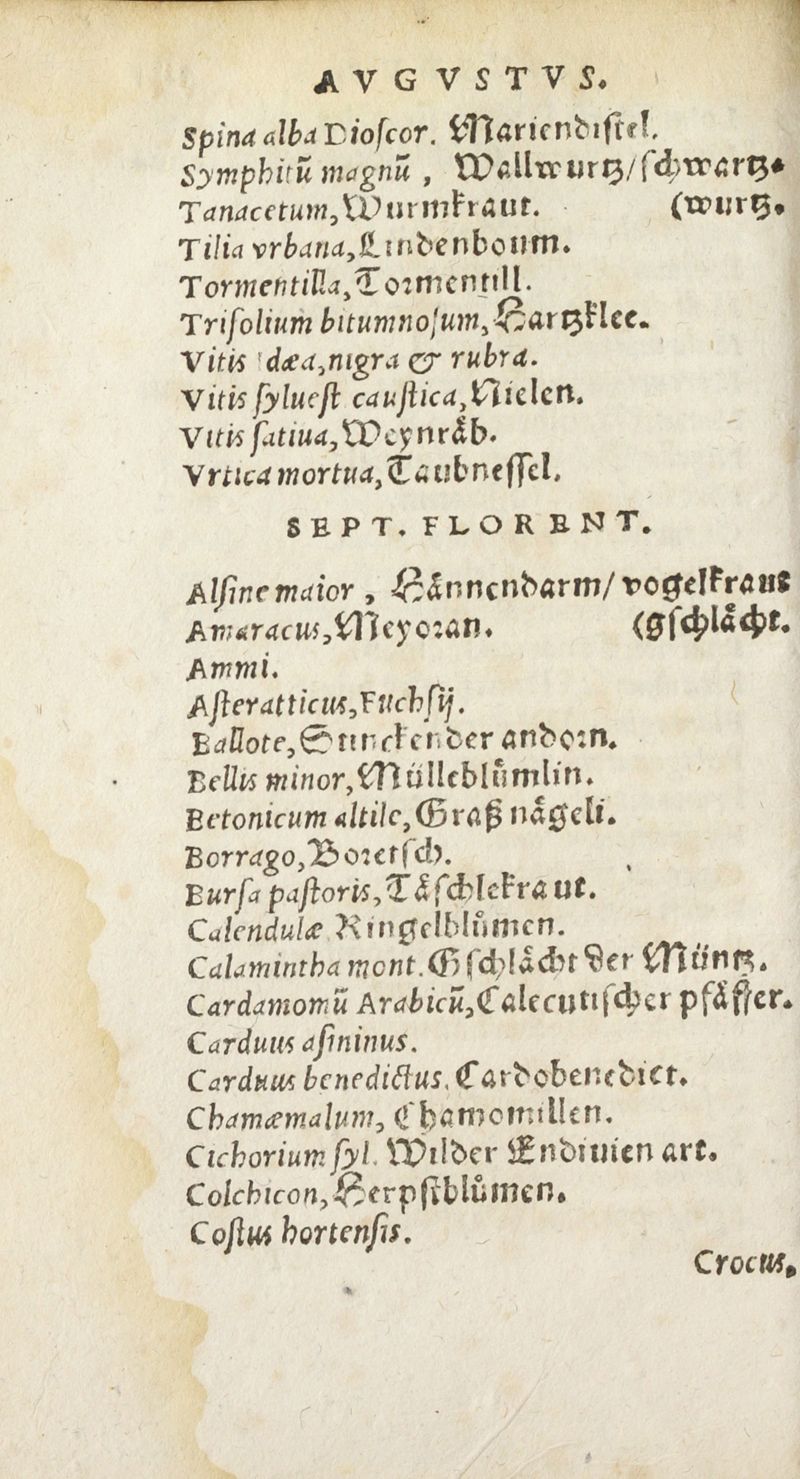 AVGVSTVS.
Spina alba Dioſcor. Mariendiſtel.
Symphitū magnū, Wallwurtz/ſchwartz⸗
Tanacetum, Wurmkraut. (wurtz.
Tilia vrbana, Lindenboum.
Tormentilla, Tormentill.
Trifolium bitumnoſum, Hartzklee.
Vitis Idæa, nigra & rubra.
Vitis ſylueſt cauſtica, Nielen.
Vitis ſatiua, Weynråb.
Vrtica mortua, Taubneſſel.
SEPT. FLORENT.
Alſine maior, Hånnendarm/vogelkraut
Amaracus, Meyoran. (gſchlåcht.
Ammi.
Aſter atticus, Fuchſij.
Ballote, Stinckender andorn.
Bellis minor, Mülleblůmlin.
Betonicum altile, Graß någeli.
Borrago, Boretſch.
Burſa paſtoris, Tåſchlekraut.
Calendulæ Ringelblůmen.
Calamintha mont. Gſchlåcht der Müntz.
Cardamomū Arabicū, Calecutiſcher pfåffer.
Carduus aſininus.
Carduus benedictus, Cardobenedict.
Chamæmalum, Chamomillen.
Cichorium ſyl. Wilder Endiuien art.
Colchicon, Herpſtblůmen.
Coſtus hortenſis.
Crocus.